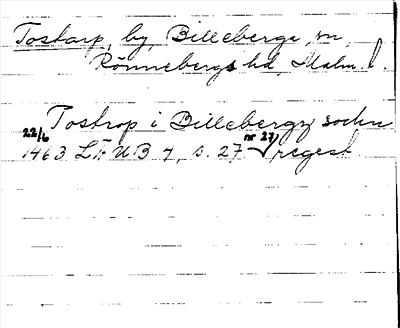 Tostarp, by, Billeberga sn,
Rönnebergs hd, Malm. l.
Tostrop i Billebergz sochn
22/6 1463 LÄUB 4, s. 27 nr 27 regest